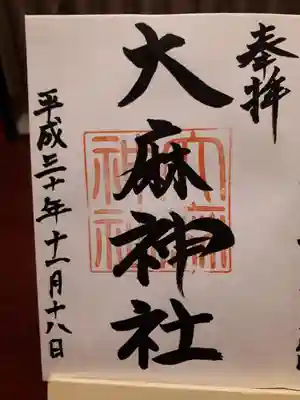 奉拝
大麻神社
平成三十年十一月十八日
大麻
神社